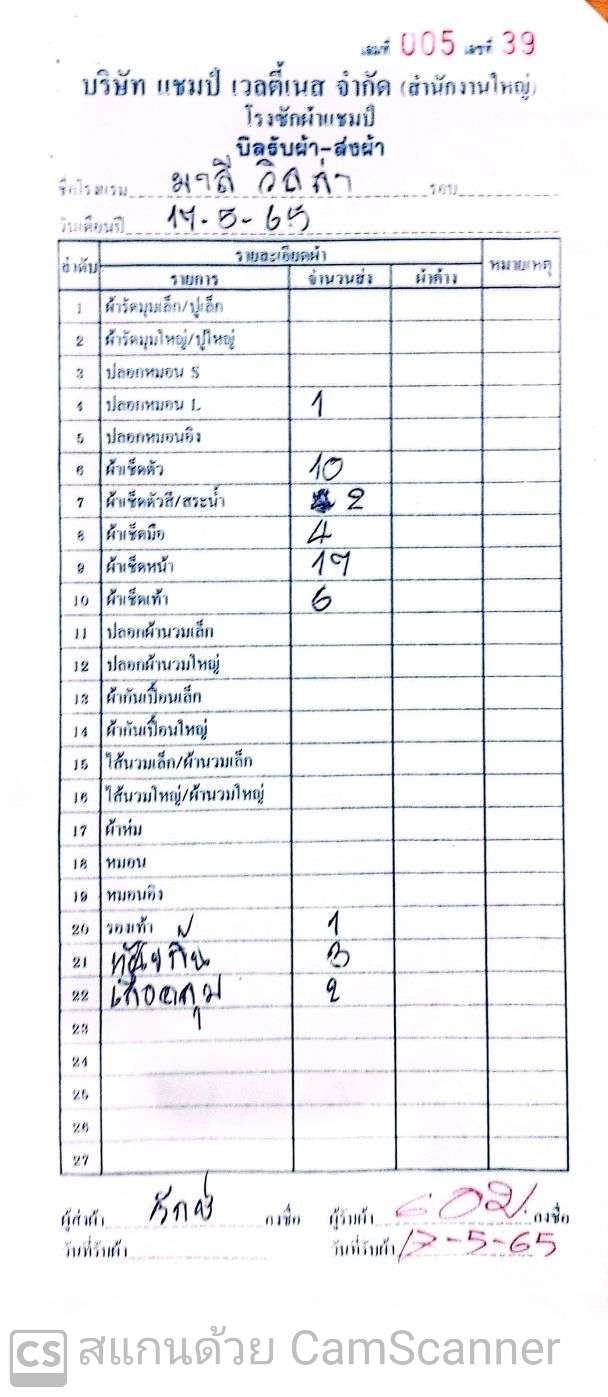 เล่มที่ 005 เลขที่ 39
บริษัท แชมป์ เวลตี้เนส จำกัด (สำนักงานใหญ่)
โรงซักผ้าแชมป์
บิลรับผ้า-ส่งผ้า
ชื่อโรงแรม มาลี วิลล่า รอบ
วันเดือนปี 17-5-65
ลำดับ รายละเอียดผ้า หมายเหตุ
รายการ จำนวนส่ง ผ้าค้าง
1 ผ้ารัดมุมเล็ก/ปูเล็ก
2 ผ้ารัดมุมใหญ่/ปูใหญ่
3 ปลอกหมอน S
4 ปลอกหมอน L 1
5 ปลอกหมอนอิง
6 ผ้าเช็ดตัว 10
7 ผ้าเช็ดตัวสี/สระน้ำ 2
8 ผ้าเช็ดมือ 4
9 ผ้าเช็ดหน้า 17
10 ผ้าเช็ดเท้า 6
11 ปลอกผ้านวมเล็ก
12 ปลอกผ้านวมใหญ่
13 ผ้ากันเปื้อนเล็ก
14 ผ้ากันเปื้อนใหญ่
15 ไส้นวมเล็ก/ผ้านวมเล็ก
16 ไส้นวมใหญ่/ผ้านวมใหญ่
17 ผ้าห่ม
18 หมอน
19 หมอนอิง
20 รองเท้า 1
21 3
22 เสื้อคลุม 2
23
24
25
26
27
ผู้ส่งผ้า ลงชื่อ ผู้รับผ้า ลงชื่อ
วันที่รับผ้า วันที่รับผ้า 17-5-65
CS สแกนด้วย CamScanner